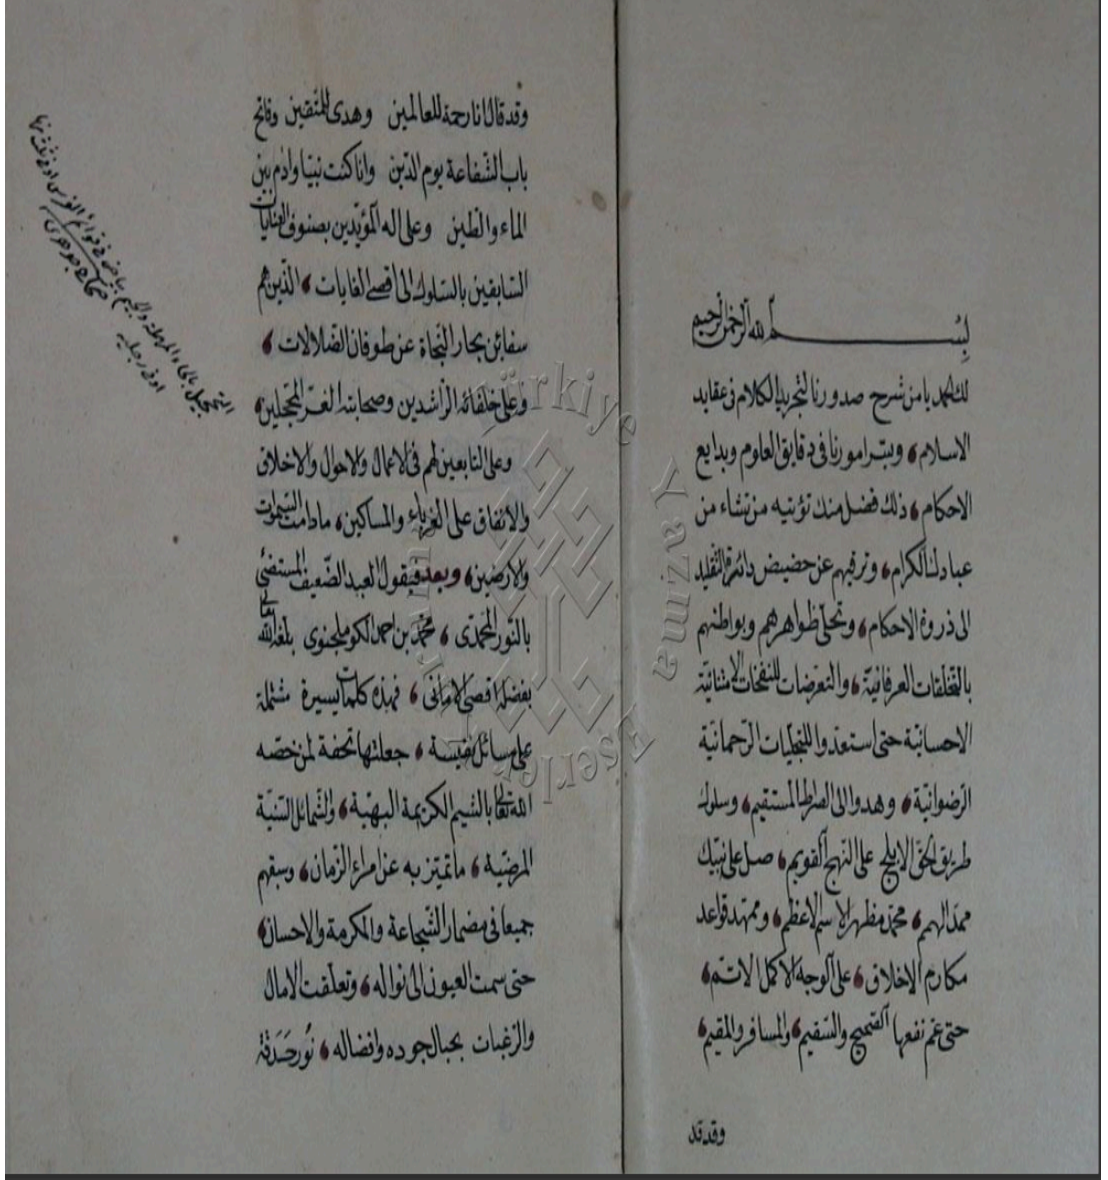 بسم الله الرحمن الرحيم
لك الحمد يا من شرح صدورنا لتجريد الكلام فى عقايد
الاسلام، ويسر امورنا فى دقايق العلوم وبدايع
الاحكام، ذلك فضل منك تؤتيه من تشاء من
عبادك الكرام، وترقيهم عن حضيض دائرة التقليد
الى ذروة الاحكام، وتحلى ظواهرهم وبواطنهم
بالتخلقات العرفانية، والتعرضات للنفحات الامتنانية
الاحسانية حتى استعدوا للتجليات الرحمانية
الرضوانية، وهدوا الى الصراط المستقيم، وسلوك
طريق الحق الابلج على النهج القويم، صل على نبيك
ممد الهمم، محمد مظهر الاسم الاعظم، وممهد قواعد
مكارم الاخلاق، على الوجه الاكمل الاتم،
حتى عم نفعها الصحيح والسقيم، والمسافر والمقيم،
وقد قد
وقد قال انا رحمة للعالمين وهدى للمتقين وفاتح
باب الشفاعة يوم الدين وانا كنت نبيا وادم بين
الماء والطين وعلى اله المؤيدين بصنوف العنايات
السابقين بالسلوك الى اقصى الغايات، الذين هم
سفائن بحار النجاة عن طوفان الضلالات،
وعلى خلفائه الراشدين وصحابته الغر المحجلين،
وعلى التابعين لهم فى الاعمال والاحوال والاخلاق
والانفاق على الغرباء والمساكين، مادامت السموات
والارضين، وبعد فيقول العبد الضعيف المستضئ
بالنور المحمدى، محمد بن احمد الكوملجنوى بلغه الله تعالى
بفضله اقصى الامانى، فهذه كلمات يسيرة مشتملة
على مسائل نفيسة، جعلتها تحفة لمن خصه
الله تعالى بالشيم الكريمة البهية، والشمائل السنية
المرضية، ما تميز به عن امراء الزمان، وسبقهم
جميعا فى مضمار الشجاعة والمكرمة والاحسان،
حتى سمت العيون الى نواله، وتعلقت الامال
والرغبات بحبال جوده وافضاله، نور حدقة
التحجيل بالحاء المهملة والجيم بياض فى قوائم الفرس او فى ثلث منها
او فى رجليه
Türkiye Yazma Eserler